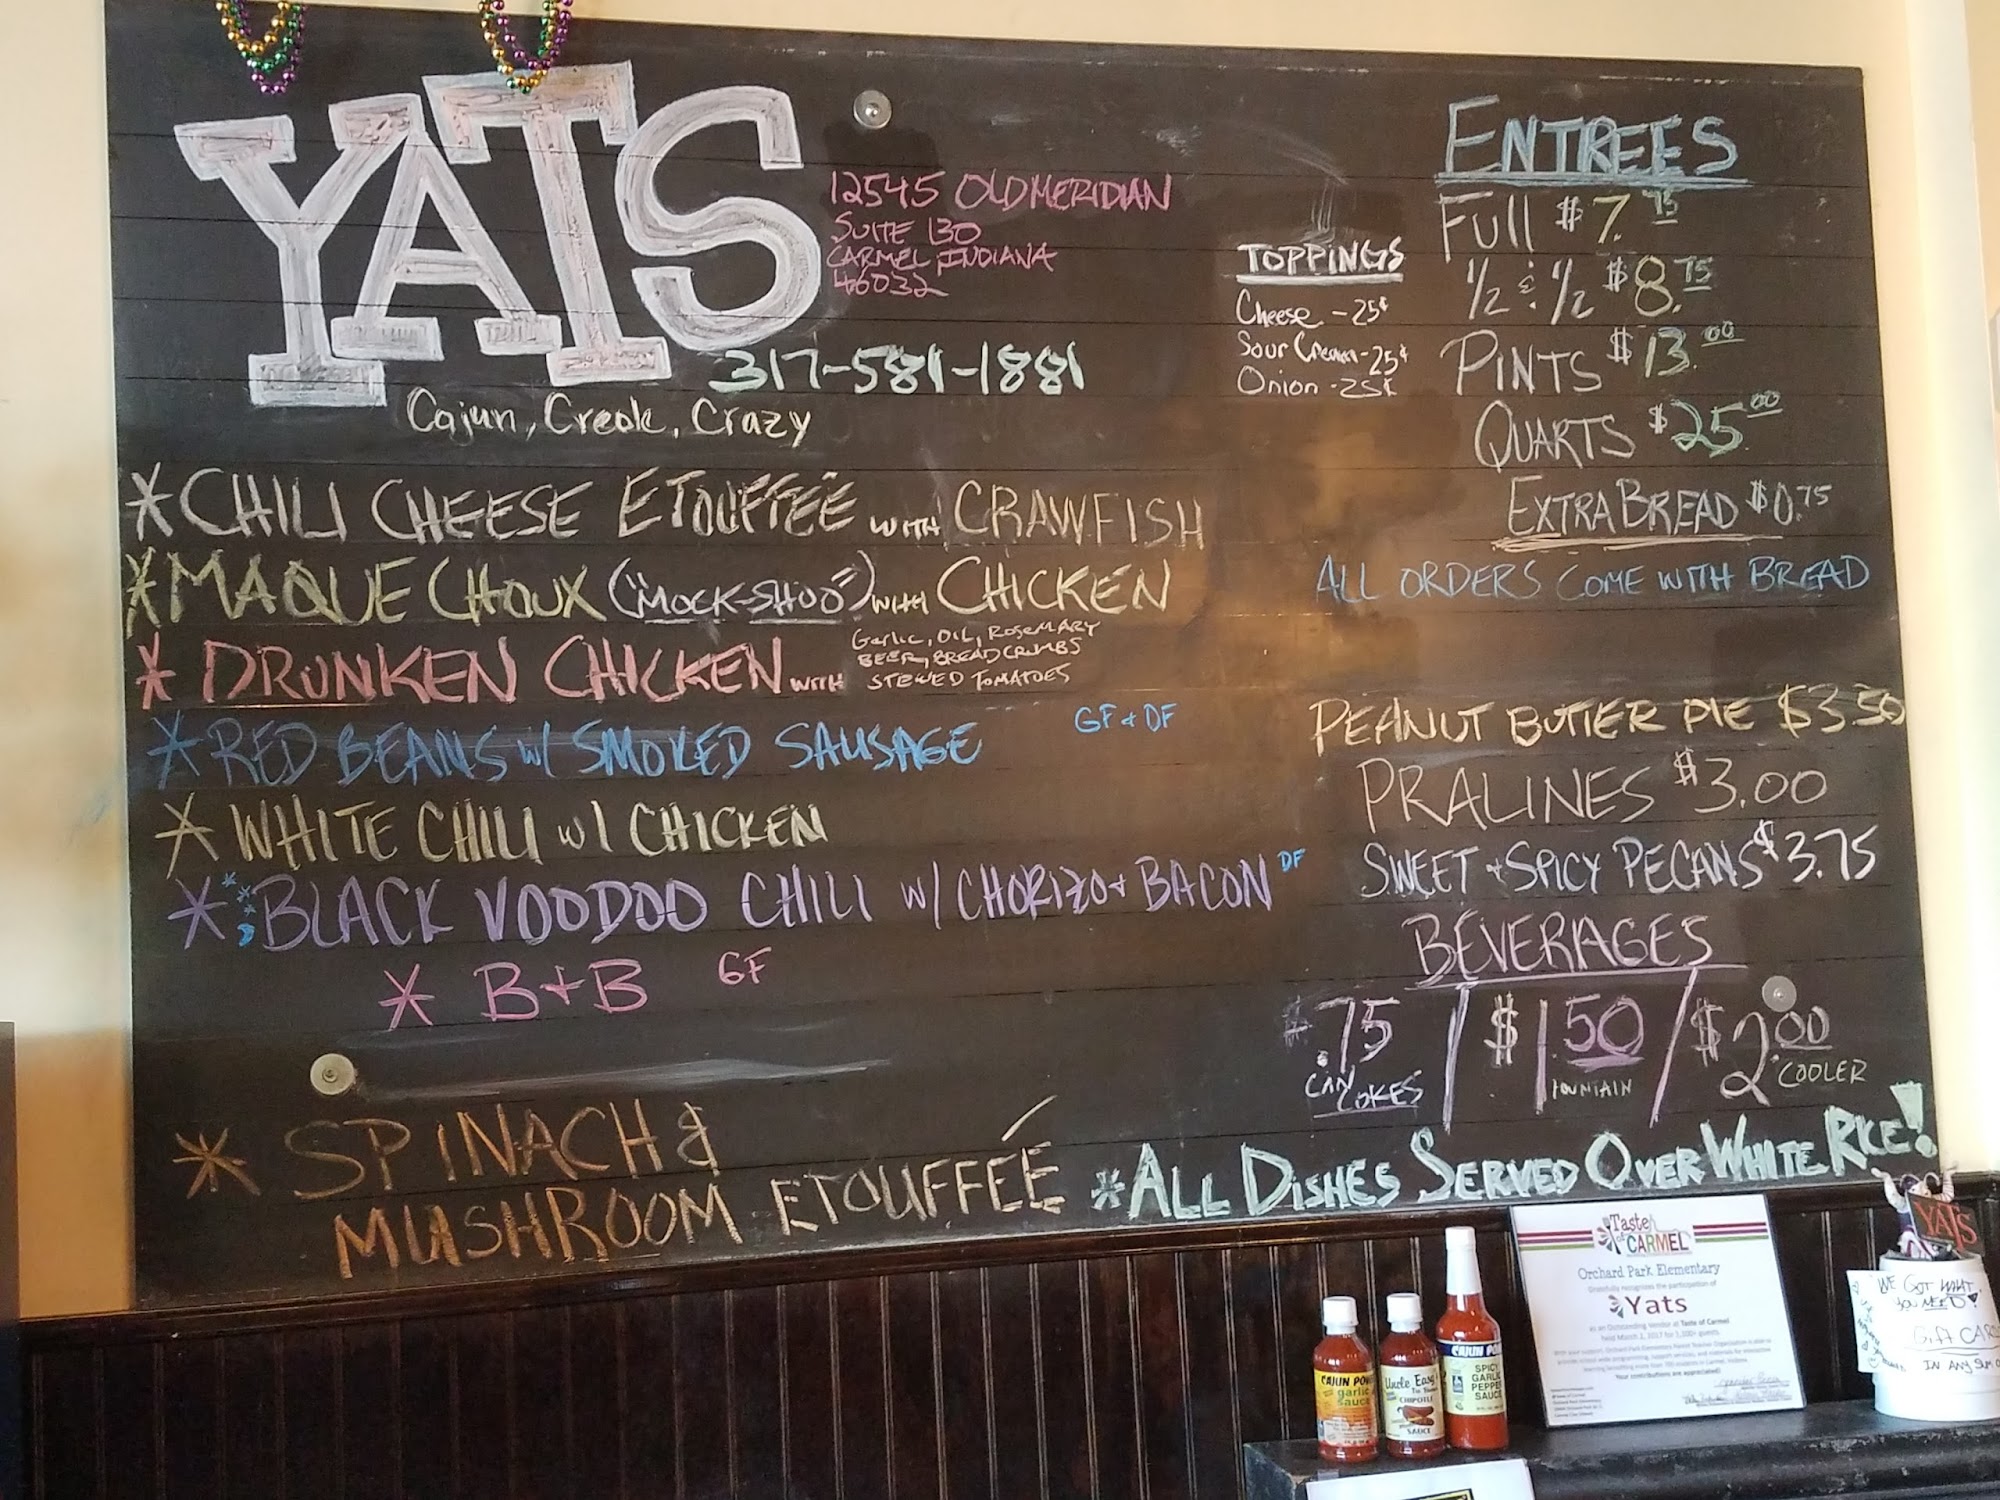 YATS
12545 OLD MERIDIAN
SUITE 130
CARMEL, INDIANA
46032
317-581-1881
Cajun, Creole, Crazy
* CHILI CHEESE ETOUFFEÉ WITH CRAWFISH
* MAQUE CHOUX ("MOCK-SHOO") WITH CHICKEN
* DRUNKEN CHICKEN WITH
Garlic, OIL, ROSEMARY
BEER, BREADCRUMBS
STEWED TOMATOES
* RED BEANS w/ SMOKED SAUSAGE GF & DF
* WHITE CHILI w/ CHICKEN
* BLACK VOODOO CHILI w/ CHORIZO + BACON DF
* B+B GF
* SPINACH &
MUSHROOM ETOUFFEÉ
TOPPINGS
Cheese - 25¢
Sour Cream - 25¢
Onion - 25¢
ENTREES
Full $7.75
1/2 & 1/2 $8.75
PINTS $13.00
QUARTS $25.00
EXTRA BREAD $0.75
ALL ORDERS COME WITH BREAD
PEANUT BUTTER PIE $3.50
PRALINES $3.00
SWEET + SPICY PECANS $3.75
BEVERAGES
$.75 / $1.50 / $2.00
CAN COKES FOUNTAIN COOLER
*ALL DISHES SERVED OVER WHITE RICE!
CAJUN POWER
garlic
sauce
Uncle Easy
CHIPOTLE
SAUCE
CAJUN POW
SPICY
GARLIC
PEPPER
SAUCE
Taste of CARMEL
Orchard Park Elementary
Gratefully recognizes the participation of
Yats
as an Outstanding Vendor at Taste of Carmel
held March 2, 2017 for 1,100+ guests.
Your contributions are appreciated!
YATS
WE GOT WHAT
YOU NEED!
Gift CARD
IN ANY SUM